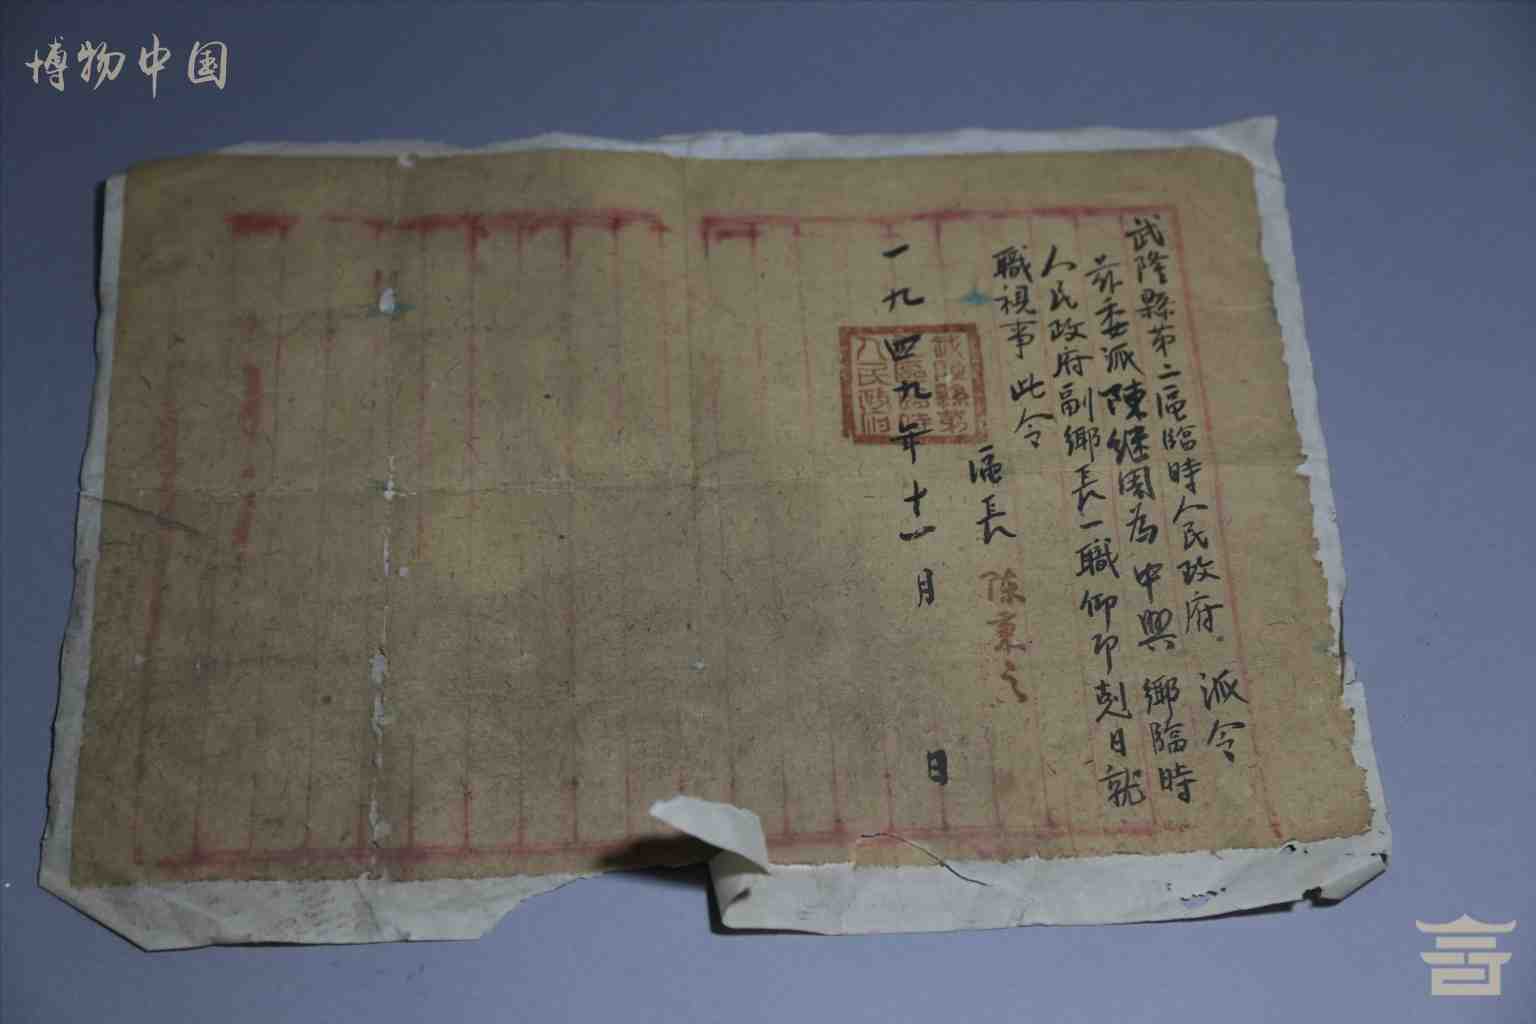 博物中国
武隆縣第二區臨時人民政府 派令
茲委派陳继周為中興鄉臨時
人民政府副鄉長一職仰即剋日就
職視事 此令
區長 陈秉之
一九四九年十一月 日
武隆縣第
二區臨時
人民政府